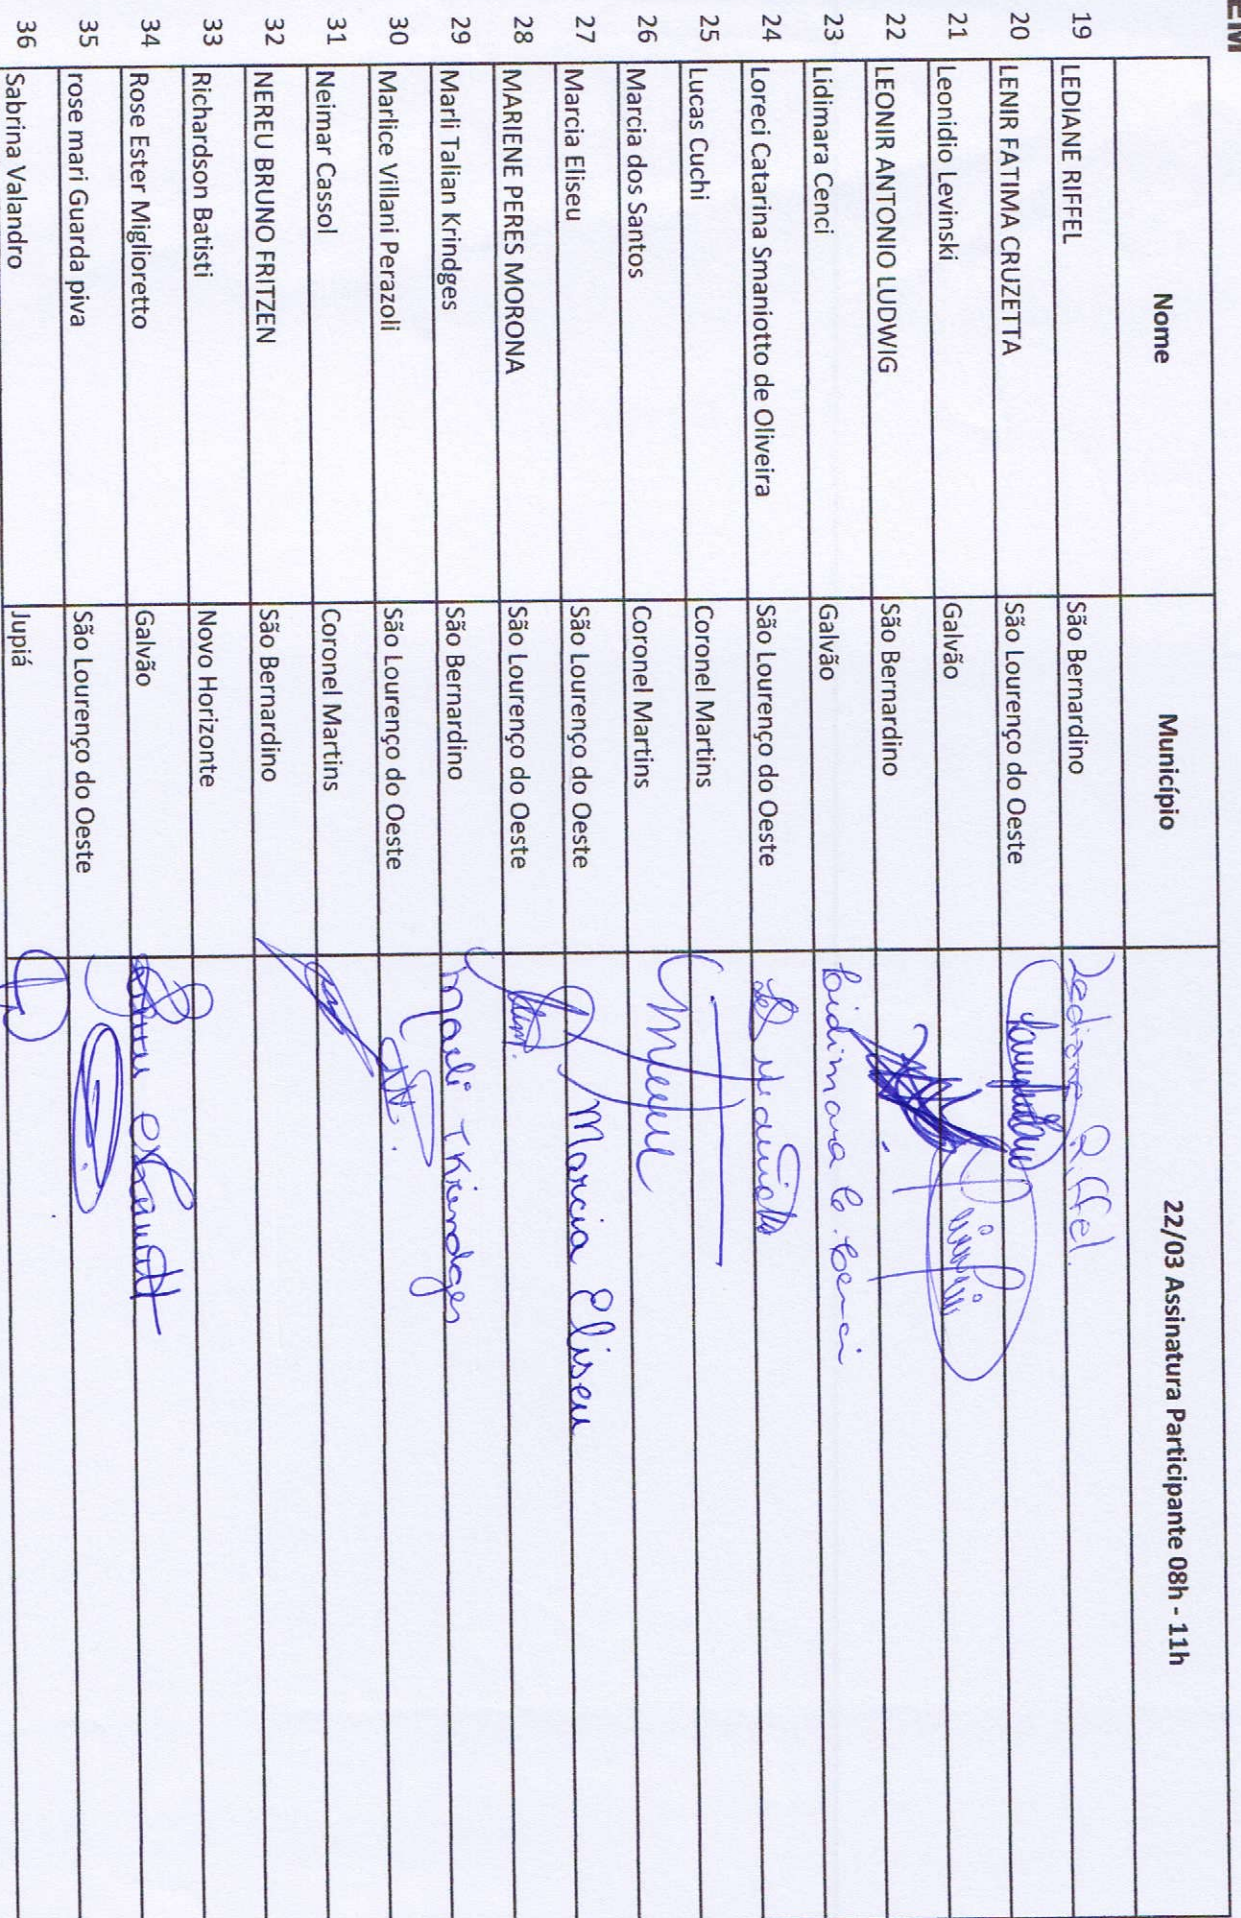 EM
Nome Município 22/03 Assinatura Participante 08h - 11h
19 LEDIANE RIFFEL São Bernardino Lediane Riffel.
20 LENIR FATIMA CRUZETTA São Lourenço do Oeste
21 Leonidio Levinski Galvão
22 LEONIR ANTONIO LUDWIG São Bernardino
23 Lidimara Cenci Galvão Lidimara C. Cenci
24 Loreci Catarina Smaniotto de Oliveira São Lourenço do Oeste
25 Lucas Cuchi Coronel Martins
26 Marcia dos Santos Coronel Martins
27 Marcia Eliseu São Lourenço do Oeste Marcia Eliseu
28 MARIENE PERES MORONA São Lourenço do Oeste
29 Marli Talian Krindges São Bernardino Marli T Krindges
30 Marlice Villani Perazoli São Lourenço do Oeste
31 Neimar Cassol Coronel Martins
32 NEREU BRUNO FRITZEN São Bernardino
33 Richardson Batisti Novo Horizonte
34 Rose Ester Miglioretto Galvão
35 rose mari Guarda piva São Lourenço do Oeste
36 Sabrina Valandro Jupiá